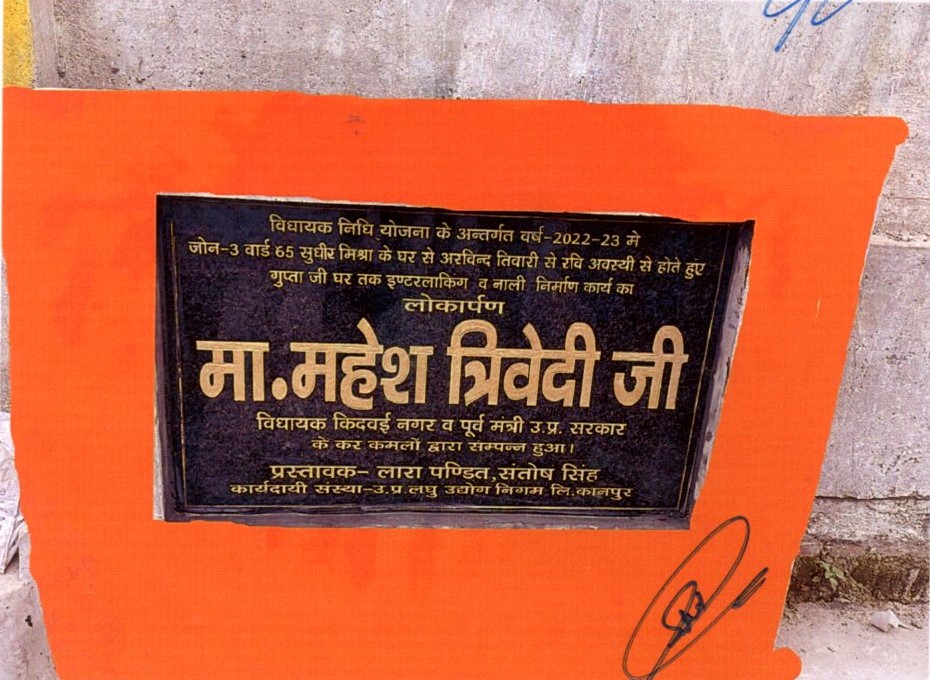 विधायक निधि योजना के अन्तर्गत वर्ष-2022-23 मे
जोन-3 वार्ड 65 सुधीर मिश्रा के घर से अरविन्द तिवारी से रवि अवस्थी से होते हुए
गुप्ता जी घर तक इण्टरलाकिंग व नाली निर्माण कार्य का
लोकार्पण
मा.महेश त्रिवेदी जी
विधायक किदवई नगर व पूर्व मंत्री उ.प्र. सरकार
के कर कमलों द्वारा सम्पन्न हुआ।
प्रस्तावक- लारा पण्डित,संतोष सिंह
कार्यदायी संस्था-उ.प्र.लघु उद्योग निगम लि.कानपुर